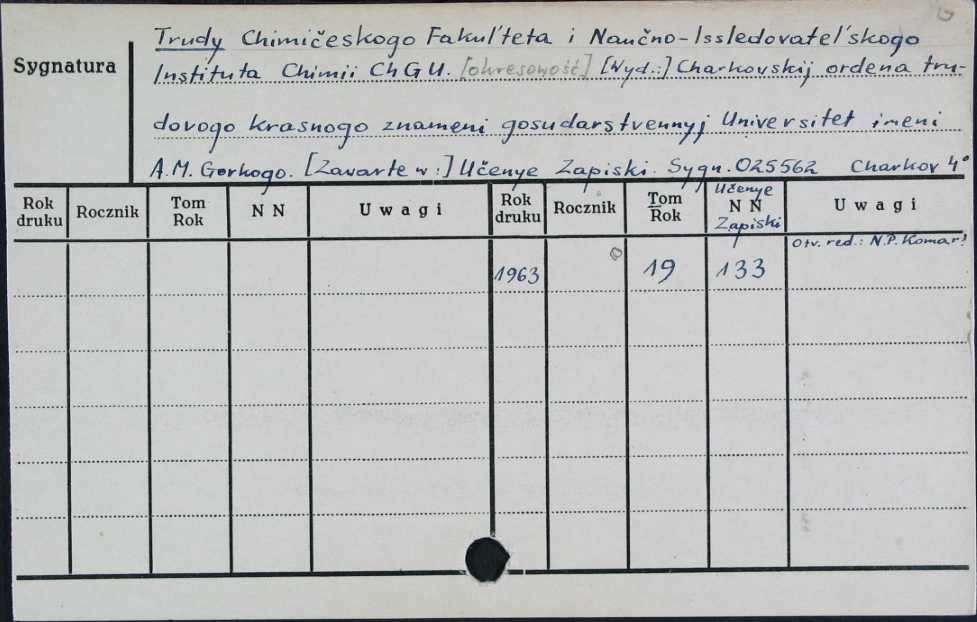 Trudy Chimičeskogo Fakul'teta i Naučno-Issledovatel'skogo
Sygnatura
Instituta Chimii ChGU. [okresowość] [Wyd.:] Charkovskij ordena tru-
dovogo krasnogo znameni gosudarstvennyj Universitet imeni
A.M. Gorkogo. [Zawarte w:] Učenye Zapiski. Sygn. 025562 Charkov 4°
Rok druku Rocznik Tom Rok N N Uwagi Rok druku Rocznik Tom Rok Učenye N N Zapiski Uwagi
Otv. red.: N.P. Komar'
1963 19 133